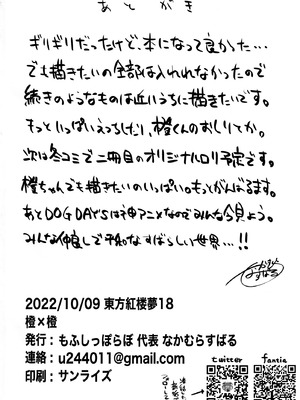 あとがき
ギリギリだったけど、本になって良かった…
でも描きたいの全部は入れれなかったので
続きのようなものは近いうちに描きたいです。
もっといっぱいえっちしたり、橙くんのおしりとか。
次は冬コミで二冊目のオリジナルロリ予定です。
橙ちゃんでも描きたいのいっぱい。もっとがんばるます。
あとDOG DAYSは神アニメなのでみんな今見よう。
みんな仲良しで平和なすばらしい世界…!!
2022/10/09 東方紅楼夢18
橙×橙
発行：もふしっぽらぼ 代表 なかむらすばる
連絡：u244011@gmail.com
印刷：サンライズ
twitter
fantia